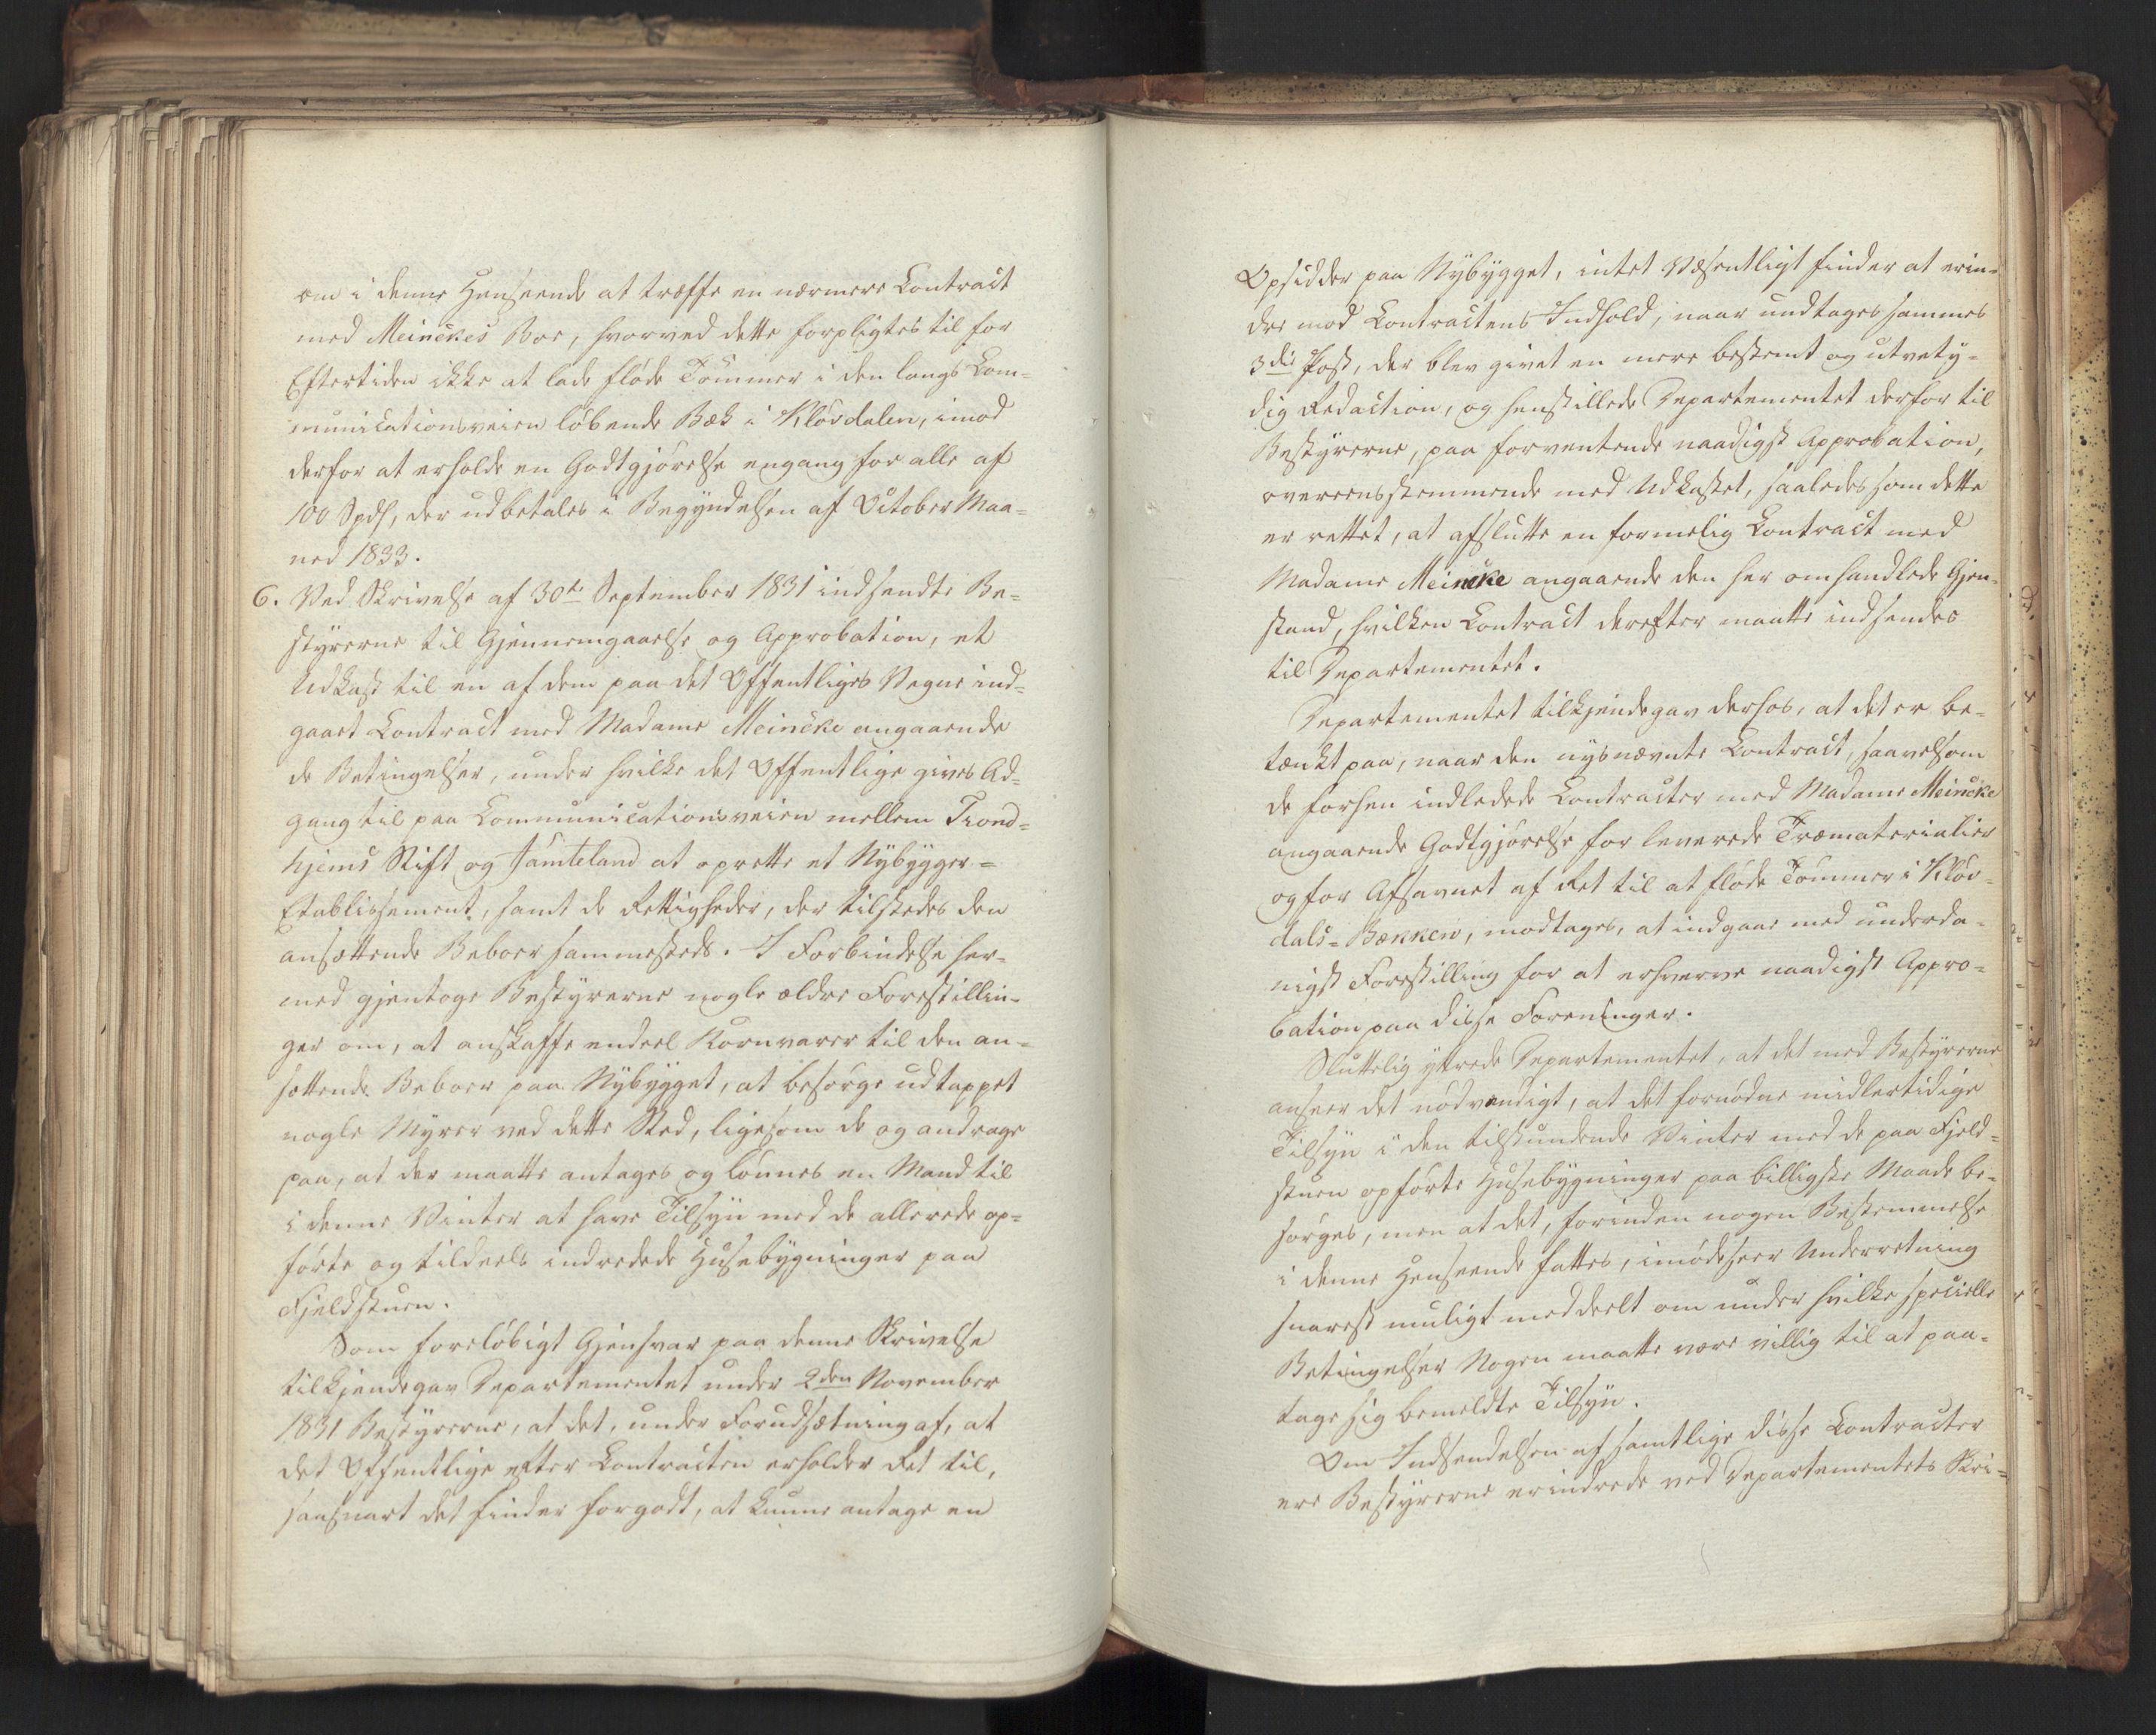 om i denne Henseende at træffe en nærmere Contract
med Meinckes Boe, hvorved dette forpligtes til for
Eftertiden ikke at lade fløde Tømmer i den langs Com-
municationsveien løbende Bæk i Kløvdalen, imod
derfor at erholde en Godtgjørelse engang for alle af
100 Spdl, der udbetales i Begyndelsen af October Maa-
ned 1833.
6. Ved Skrivelse af 30te September 1831 indsendte Be-
styrerne til Gjennemgaaelse og Approbation, et
Udkast til en af dem paa det Offentliges Vegne ind-
gaaet Contract med Madame Meincke angaaende
de Betingelser, under hvilke det Offentlige gives Ad-
gang til paa Communicationsveien mellem Trond-
hjems Stift og Jämteland at oprette et Nybygger-
Etablissement, samt de Rettigheder, der tilstedes den
ansættende Beboer sammesteds. I Forbindelse her-
med gjentoge Bestyrerne nogle ældre Forestillin-
ger om, at anskaffe endeel Kornvarer til den an-
sættende Beboer paa Nybygget, at besørge udtappet
nogle Myrer ved dette Sted, ligesom de og androge
paa, at der maatte antages og lønnes en Mand til
i denne Vinter at have Tilsyn med de allerede op-
førte og tildeels indredede Huusebygninger paa
Fjeldstuen.
Som foreløbigt Gjensvar paa denne Skrivelse
tilkjendegav Departementet under 2den November
1831 Bestyrerne, at det, under Forudsætning af, at
det Offentlige efter Contracten erholder Ret til,
saasnart det finder forgodt, at kunne antage en
Opsidder paa Nybygget, intet Væsentligt finder at erin-
dre mod Contractens Indhold, naar undtages sammes
3die Post, der blev givet en mere bestemt og utvety-
dig Redaction, og henstillede Departementet derfor til
Bestyrerne, paa forventende naadigst Approbation,
overeensstemmende med Udkastet, saaledes som dette
er rettet, at afslutte en formelig Contract med
Madame Meincke angaaende den her omhandlede Gjen-
stand, hvilken Contract derefter maatte indsendes
til Departementet.
Departementet tilkjendegav derhos, at det er be-
tænkt paa, naar den nysnævnte Contract, saavelsom
de forhen indledede Contracter med Madame Meincke
angaaende Godtgjørelse for leverede Træmaterialier
og for Afsavnet af Ret til at fløde Tømmer i Kløv-
dals-Bækken, modtages, at indgaae med underda-
nigst Forestilling for at erhverve naadigst Appro-
bation paa disse Foreninger.
Sluttelig yttrede Departementet, at det med Bestyrerne
anseer det nødvendigt, at det fornødne midlertidige
Tilsyn i den tilstundende Vinter med de paa Fjeld-
stuen opførte Huusebygninger paa billigste Maade be-
sørges, men at det, forinden nogen Bestemmelse
i denne Henseende fattes, imødeseer Underretning
snarest muligt meddeelt om under hvilke specielle
Betingelser Nogen maatte være villig til at paa-
tage sig bemeldte Tilsyn.
Om Indsendelsen af samtlige disse Contracter
ere Bestyrerne erindrede ved Departementets Skri-